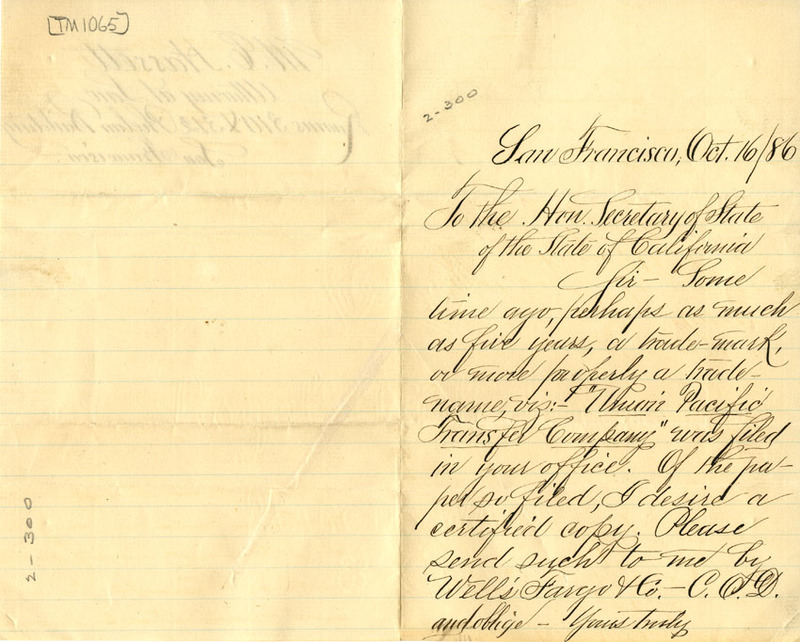 [TM1065]
M. C. Hassett
Attorney at Law
Rooms 311 & 312 Phelan Building
San Francisco
2-300
2-300
San Francisco, Oct. 16/86
To the Hon. Secretary of State
of the State of California
Sir- Some
time ago, perhaps as much
as five years, a trade-mark,
or more properly a trade-
name, viz:- "Union Pacific
Transfer Company" was filed
in your office. Of the pa-
per so filed, I desire a
certified copy. Please
send such to me by
Wells Fargo & Co. - C.O.D.
and oblige - Yours truly